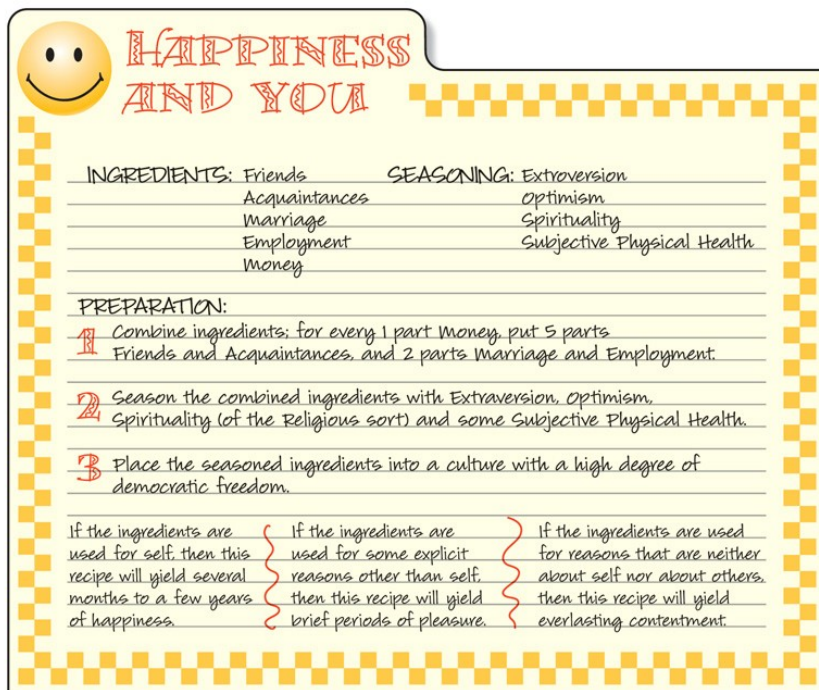 HAPPINESS
AND YOU
INGREDIENTS: Friends
Acquaintances
Marriage
Employment
Money
SEASONING: Extroversion
Optimism
Spirituality
Subjective Physical Health
PREPARATION:
1 Combine ingredients; for every 1 part Money, put 5 parts
Friends and Acquaintances, and 2 parts Marriage and Employment.
2 Season the combined ingredients with Extraversion, Optimism,
Spirituality (of the Religious sort) and some Subjective Physical Health.
3 Place the seasoned ingredients into a culture with a high degree of
democratic freedom.
If the ingredients are
used for self, then this
recipe will yield several
months to a few years
of happiness.
If the ingredients are
used for some explicit
reasons other than self,
then this recipe will yield
brief periods of pleasure.
If the ingredients are used
for reasons that are neither
about self nor about others,
then this recipe will yield
everlasting contentment.